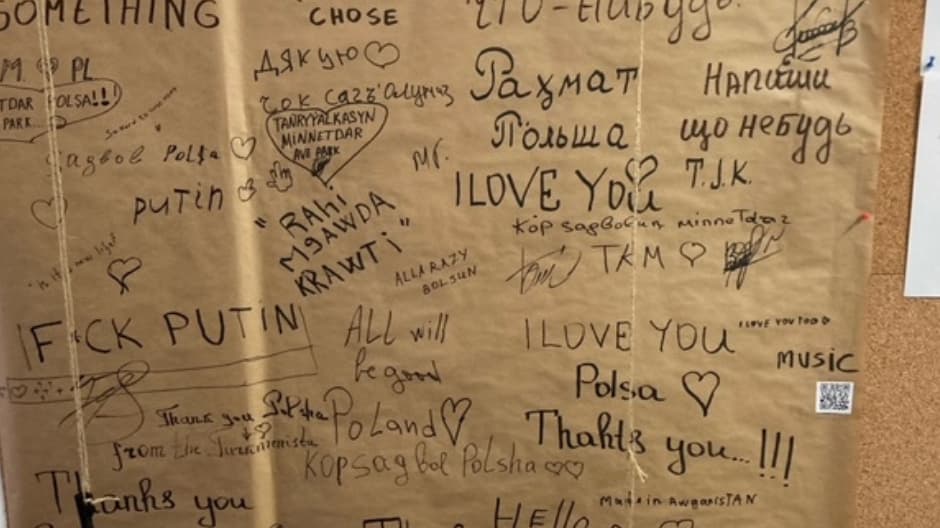 SOMETHING
CHOSE
ЧТО-НИБУДЬ.
ДЯКУЮ
M. PL
Рахмат
Напиши
TDAR POLSA!!!
PARK
TANRYYALKASYN
MINNETDAR
AVE PARK
Польша
що небудь
sagbol Polşa
Mr.
I LOVE YOU
T.J.K.
putin
"RAHI
MGAWDA
KRAWTI"
TKM
ALLA RAZY
BOLSUN
F*CK PUTIN
ALL will
be good
I LOVE YOU
I LOVE YOU TOO
MUSIC
Polsa
Thank you Polsha
from the
Poland
Thakts you...!!!
KOPSAgbol Polsha
Thanks you
Made in AwganisTAN
Hello